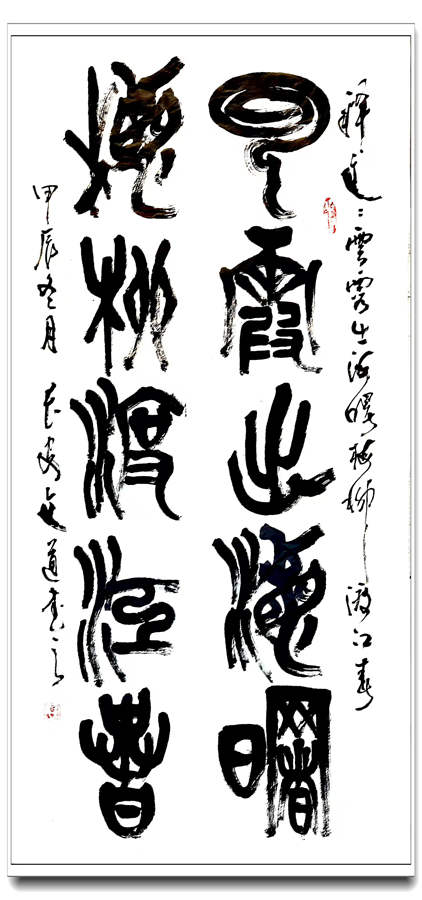 釋文：雲霞出海曙梅柳渡江春
云霞出海曙
梅柳渡江春
甲辰冬月 道書